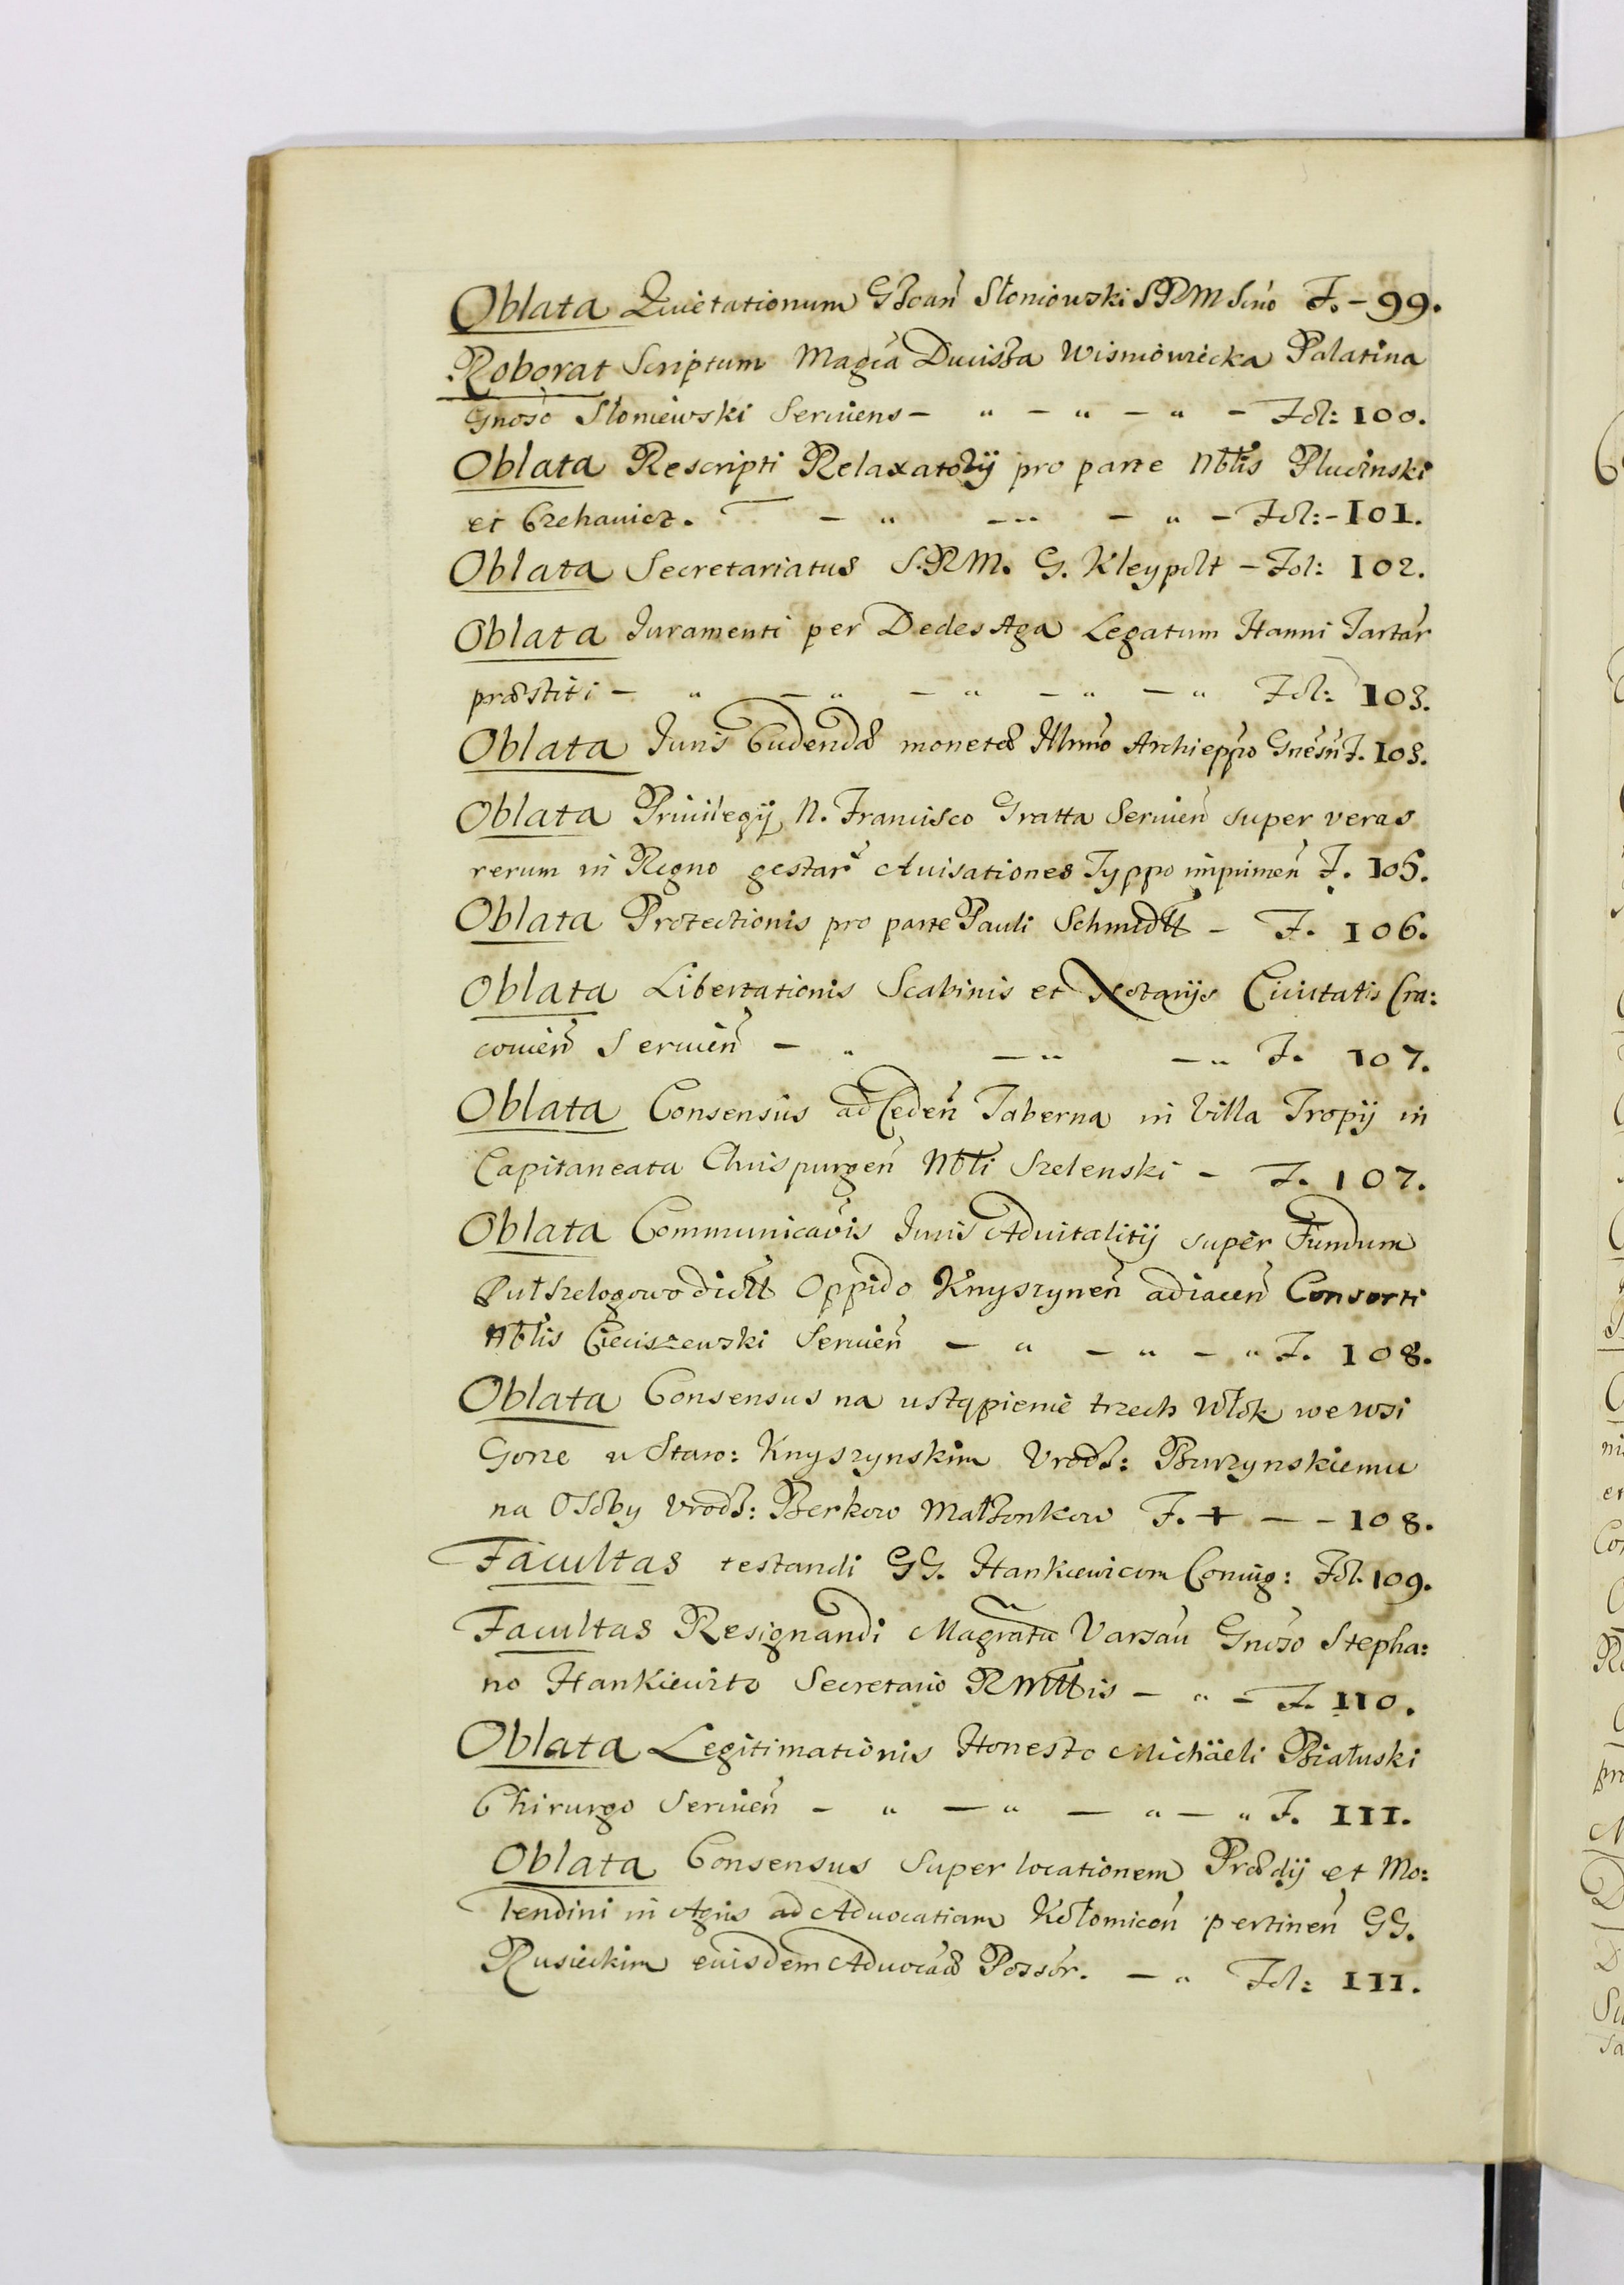 Oblata Quietationum G Joañ Słoniowski SRM Seruo F. - 99.
Roborat Scriptum Magca Ducissa Wisniowiecka Palatina
Gnoso Słoniewski Seruiens - " - " - " - Fol: 100.
Oblata Rescripti Relaxatorij pro parte Nbtis Plucinski
et Czehanicz. - " - - " - Fol: - 101.
Oblata Secretariatus S.R.M. G. Kleypolt - Fol: 102.
Oblata Juramenti per Dedes Aga Legatum Hanni Tartar
præstiti - " - " - " - " - " Fol: 103.
Oblata Juris Cudendæ monetæ Illmo Archieppo Gnesn F. 103.
Oblata Priuilegij N. Francisco Gratta Seruien super veras
rerum in Regno gestar Auisationes Typpo imprimen F. 105.
Oblata Protectionis pro parte Pauli Schmidtt - F. 106.
Oblata Libertationis Scabinis et Notarijs Ciuitatis Cra:
couien Seruien - " - " - " F. 107.
Oblata Consensus ad Ceden Taberna in Villa Tropij in
Capitaneata Chrispurgen Nbti Szelenski - F. 107.
Oblata Communicaois Juris Aduitalitij super Fundum
Pułszelogowo dictt Oppido Knyszynen adiacen Consorti
Nbtis Cieciszewski Seruien - " - " - " F. 108.
Oblata Consensus na ustąpienie trzech Włok we wsi
Gorze w Staro: Knyszynskim Vrodz: Burzynskiemu
na Osoby vrodz: Berkow Małżonkow F. + - - 108.
Facultas testandi GG. Hankiewicom Coniug: Fol. 109.
Facultas Resignandi Magratu Varsau Gnoso Stepha:
no Hankiewitz Secretario RMttis - " - F. 110.
Oblata Legitimationis Honesto Michäeli Białuski
Chirurgo Seruien - " - " - " - " F. 111.
Oblata Consensus super locationem Prædij et Mo:
lendini in Agris ad Aduocatiam Kołomicen pertinen GG.
Rusieckim eiusdem Aduocaæ Possor. - " Fol: 111.